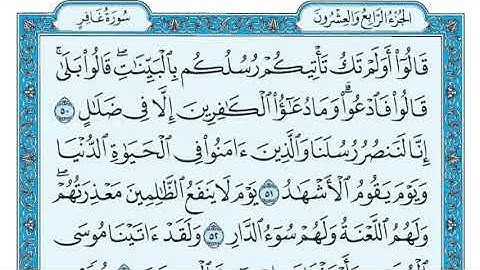 الجزء الرابع والعشرون
سورة غافر
قَالُوٓاْ أَوَلَمۡ تَكُ تَأۡتِيكُمۡ رُسُلُكُم بِٱلۡبَيِّنَٰتِۖ قَالُواْ بَلَىٰۚ
قَالُواْ فَٱدۡعُواْۗ وَمَا دُعَٰٓؤُاْ ٱلۡكَٰفِرِينَ إِلَّا فِي ضَلَٰلٍ ٥٠
إِنَّا لَنَنصُرُ رُسُلَنَا وَٱلَّذِينَ ءَامَنُواْ فِي ٱلۡحَيَوٰةِ ٱلدُّنۡيَا
وَيَوۡمَ يَقُومُ ٱلۡأَشۡهَٰدُ ٥١ يَوۡمَ لَا يَنفَعُ ٱلظَّٰلِمِينَ مَعۡذِرَتُهُمۡۖ
وَلَهُمُ ٱللَّعۡنَةُ وَلَهُمۡ سُوٓءُ ٱلدَّارِ ٥٢ وَلَقَدۡ ءَاتَيۡنَا مُوسَى